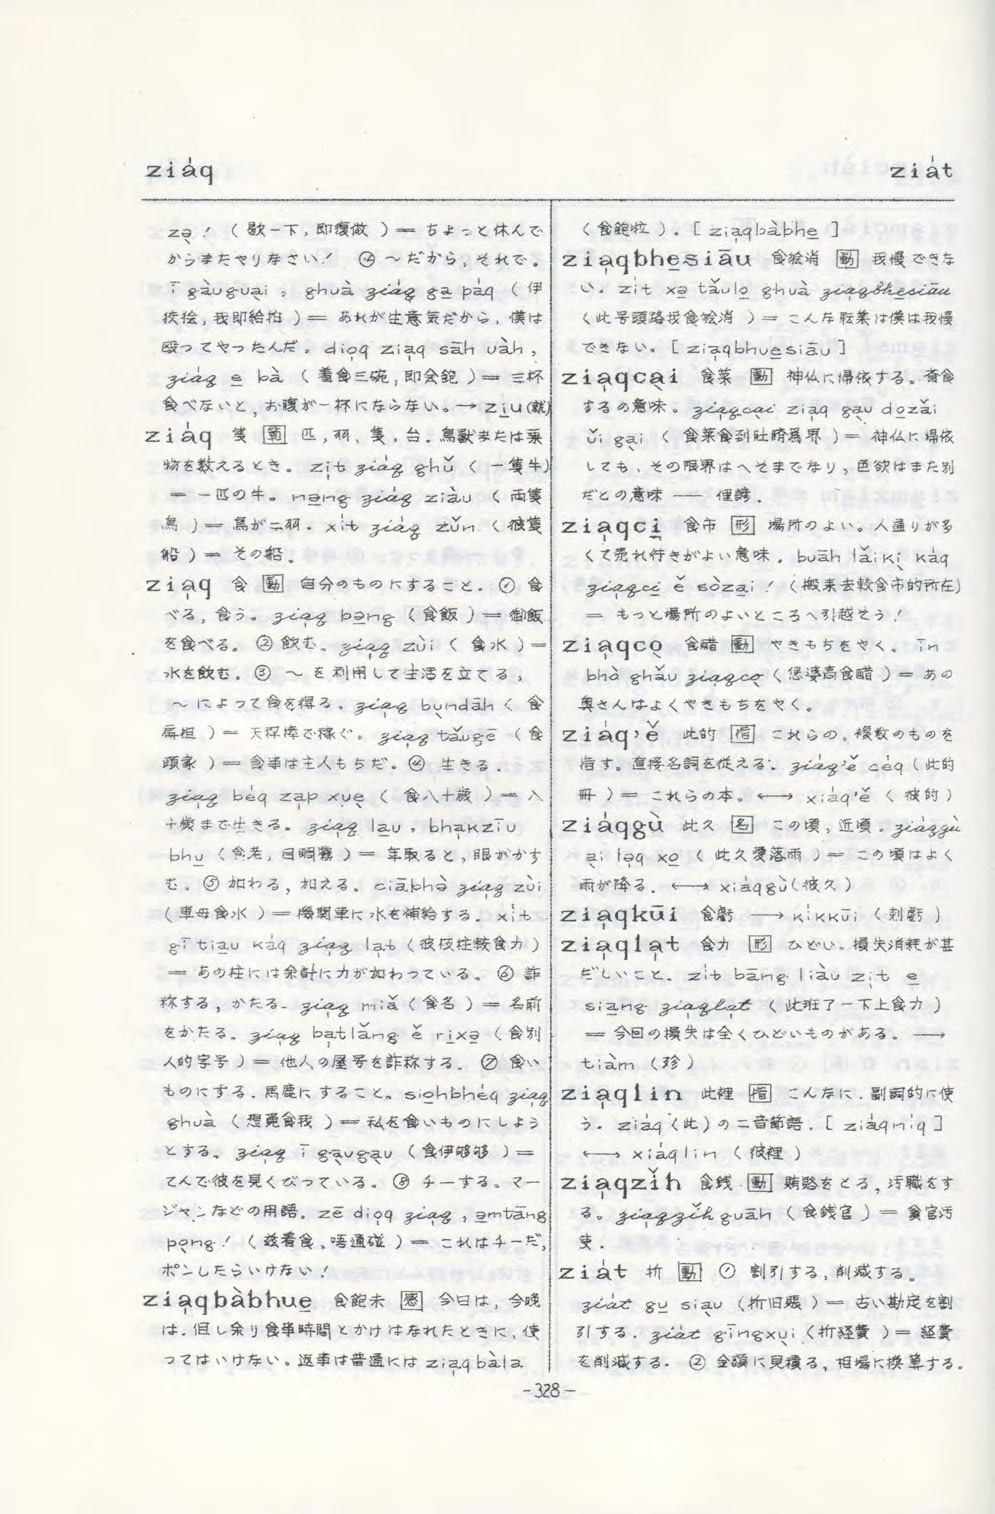 ziáq
ziát
zə̣！（歇一下，即復做）＝ ちょっと休んで
からまたやりなさい！ ④ ～だから，それで。
ī gàuguại，ghuà ziáq gạ páq（伊
狡獪，我即給拍）＝ あれが生意気だから，僕は
殴ってやったんだ。diọq ziạq sāh uàh，
ziáq ẹ bà（着食三碗，即会飽）＝ 三杯
食べないと，お腹が一杯にならない。→ zịu(就)
ziáq 隻 [箇] 匹，羽，隻，台．鳥獣または乗
物を数えるとき。zịt ziáq ghǔ（一隻牛）
＝ 一匹の牛。nạng ziáq ziàu（両隻
鳥）＝ 鳥が二羽．xít ziáq zǔn（彼隻
船）＝ その船．
ziạq 食 [動] 自分のものにすること。① 食
べる，食う。ziạq bạng（食飯）＝ 御飯
を食べる。② 飲む。ziạq zùi（食水）＝
水を飲む。③ ～を利用して生活を立てる，
～によって食を得る．ziạq bụndāh（食
）＝ 天秤棒で稼ぐ。ziạq tǎugē（食
頭家）＝ 食事は主人もちだ。④ 生きる．
ziạq béq zạp xuẹ（食八十歳）＝ 八
十歳まで生きる。ziạq lạu，bhạkziū
bhụ（食老，目睭霧）＝ 年取ると，眼がかす
む。⑤ 加わる，加える。ciābhò ziạq zùi
（車母食水）＝ 機関車に水を補給する．xít
gī tiạu káq ziạq lạt（彼枝柱較食力）
＝ あの柱には余計に力が加わっている。⑥ 詐
称する，かたる．ziạq miǎ（食名）＝ 名前
をかたる。ziạq bạtlǎng ě rixə（食別
人的字号）＝ 他人の屋号を詐称する。⑦ 食い
ものにする．馬鹿にすること。siọhbhéq ziạq
ghuà（想覔食我）＝ 私を食いものにしよう
とする。ziạq ī gạugạu（食伊够够）＝
てんで彼を見くびっている。⑧ チーする。マー
ジャンなどの用語．zē diọq ziạq，ạmtāng
pọng！（玆着食，唔通碰）＝ これはチーだ，
ポンしたらいけない！
ziạqbàbhuẹ 食飽未 [感] 今日は，今晩
は．但し余り食事時間とかけはなれたときに，使
ってはいけない。返事は普通には ziạqbàla
（食飽啦）．[ ziạqbàbhẹ ]
ziạqbhẹsiāu 食獪消 [動] 我慢できな
い．zít xə tǎulọ ghuà ziạqbhẹsiāu
（此号頭路我食獪消）＝ こんな職業は僕は我慢
できない。[ ziạqbhuẹsiāu ]
ziạqcại 食菜 [動] 神仏に帰依する。斎食
するの意味。ziạqcại ziạq gạu dọzǎi
ǔi gại（食菜食到肚臍為界）＝ 神仏に帰依
しても，その限界はへそまでなり，色欲はまた別
だとの意味 ── 俚諺．
ziạqcị 食市 [形] 場所のよい。人通りが多
くて売れ行きがよい意味．buāh lǎikị káq
ziạqcị ě sòzại！（搬来去較食市的所在）
＝ もっと場所のよいところへ引越そう！
ziạqcọ 食醋 [動] やきもちをやく。īn
bhò ghǎu ziạqcọ（𪜶婆高食醋）＝ あの
奥さんはよくやきもちをやく。
ziáq’ě 此的 [指] これらの。複数のものを
指す。直接名詞を従える．ziáq’ě céq（此的
冊）＝ これらの本。←→ xiáq’ě（彼的）
ziáqgù 此久 [名] この頃，近頃．ziáqgù
ại lạq xọ（此久愛落雨）＝ この頃はよく
雨が降る．←→ xiáqgù(彼久）
ziạqkūi 食虧 ──→ kíkkūi（刺虧）
ziạqlạt 食力 [形] ひどい。損失消耗が甚
だしいこと．zít bāng liàu zịt ẹ
siạng ziạqlạt（此班了一下上食力）
＝ 今回の損失は全くひどいものがある。──→
tiàm（殄）
ziáqlin 此裡 [指] こんなに．副詞的に使
う．ziáq（此）の二音節語．[ ziáqníq ]
←→ xiáqlin（彼裡）
ziạqzǐh 食銭 [動] 賄賂をとる，汚職をす
る。ziạqzǐh guāh（食銭官）＝ 貪官汚
吏．
ziát 折 [動] ① 割引する，削減する。
ziát gụ siạu（折旧賬）＝ 古い勘定を割
引する．ziát gīngxụi（折経費）＝ 経費
を削減する．② 金額に見積る，相場に換算する．
－328－